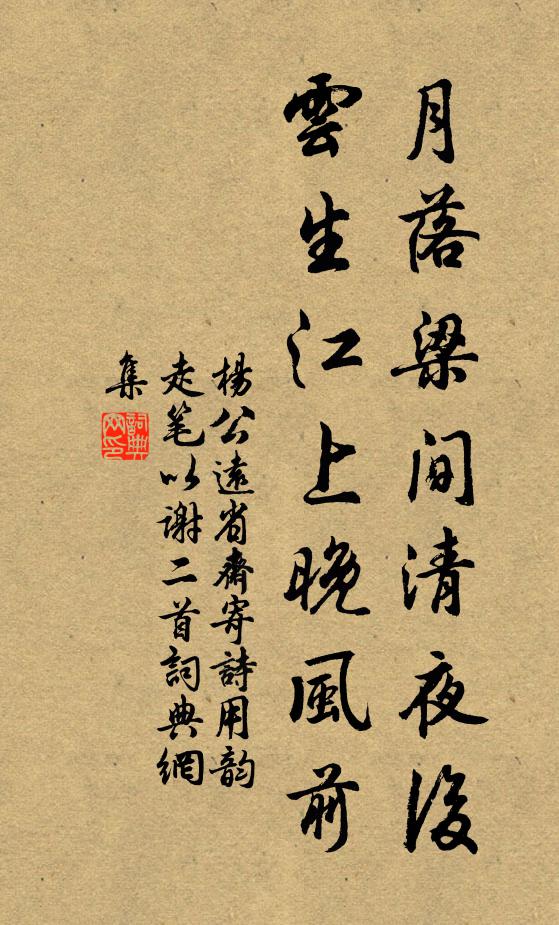 月落梁間清夜後
雲生江上晚風前
楊公遠省齋寄詩用韵
走笔以谢二首詞典網
集
詞典
网印